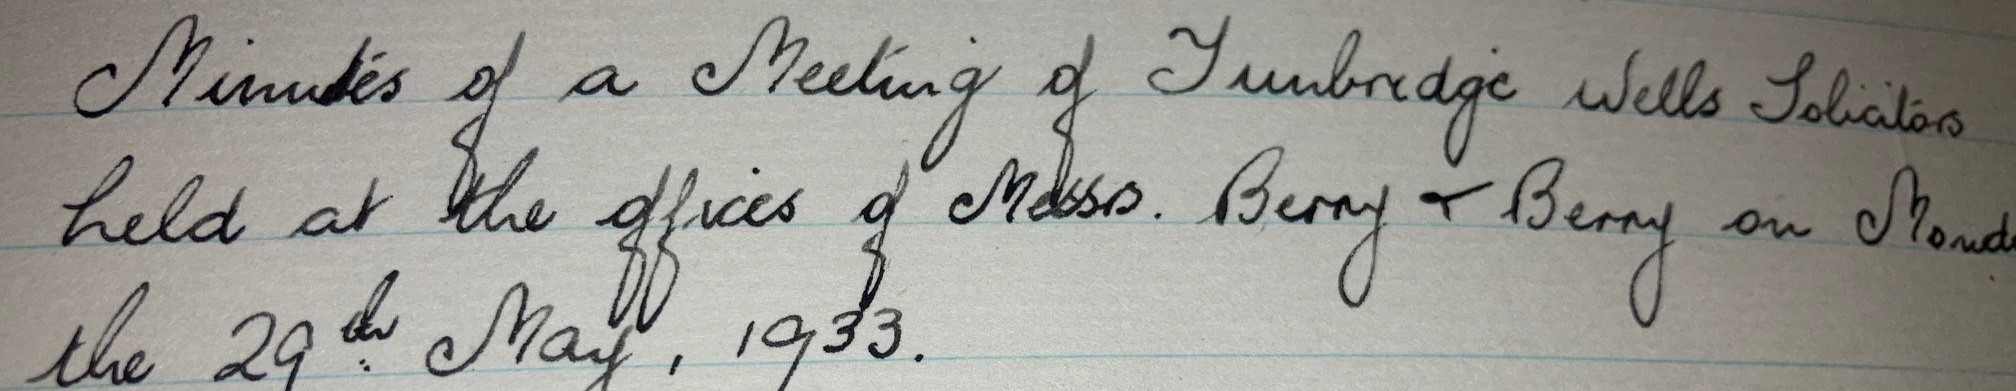 Minutes of a Meeting of Tunbridge Wells Solicitors
held at the offices of Messrs. Berry & Berry on Mond
the 29th. May, 1933.